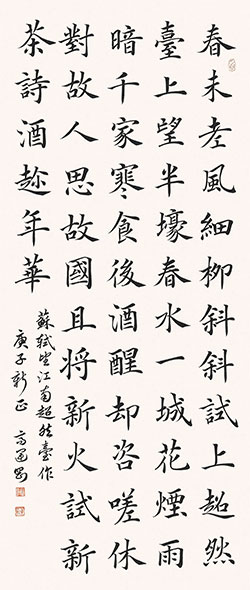 春未老風細柳斜斜試上超然
臺上望半壕春水一城花煙雨
暗千家寒食後酒醒却咨嗟休
對故人思故國且将新火試新
茶詩酒趂年華
蘇軾望江南超然臺作
庚子新正